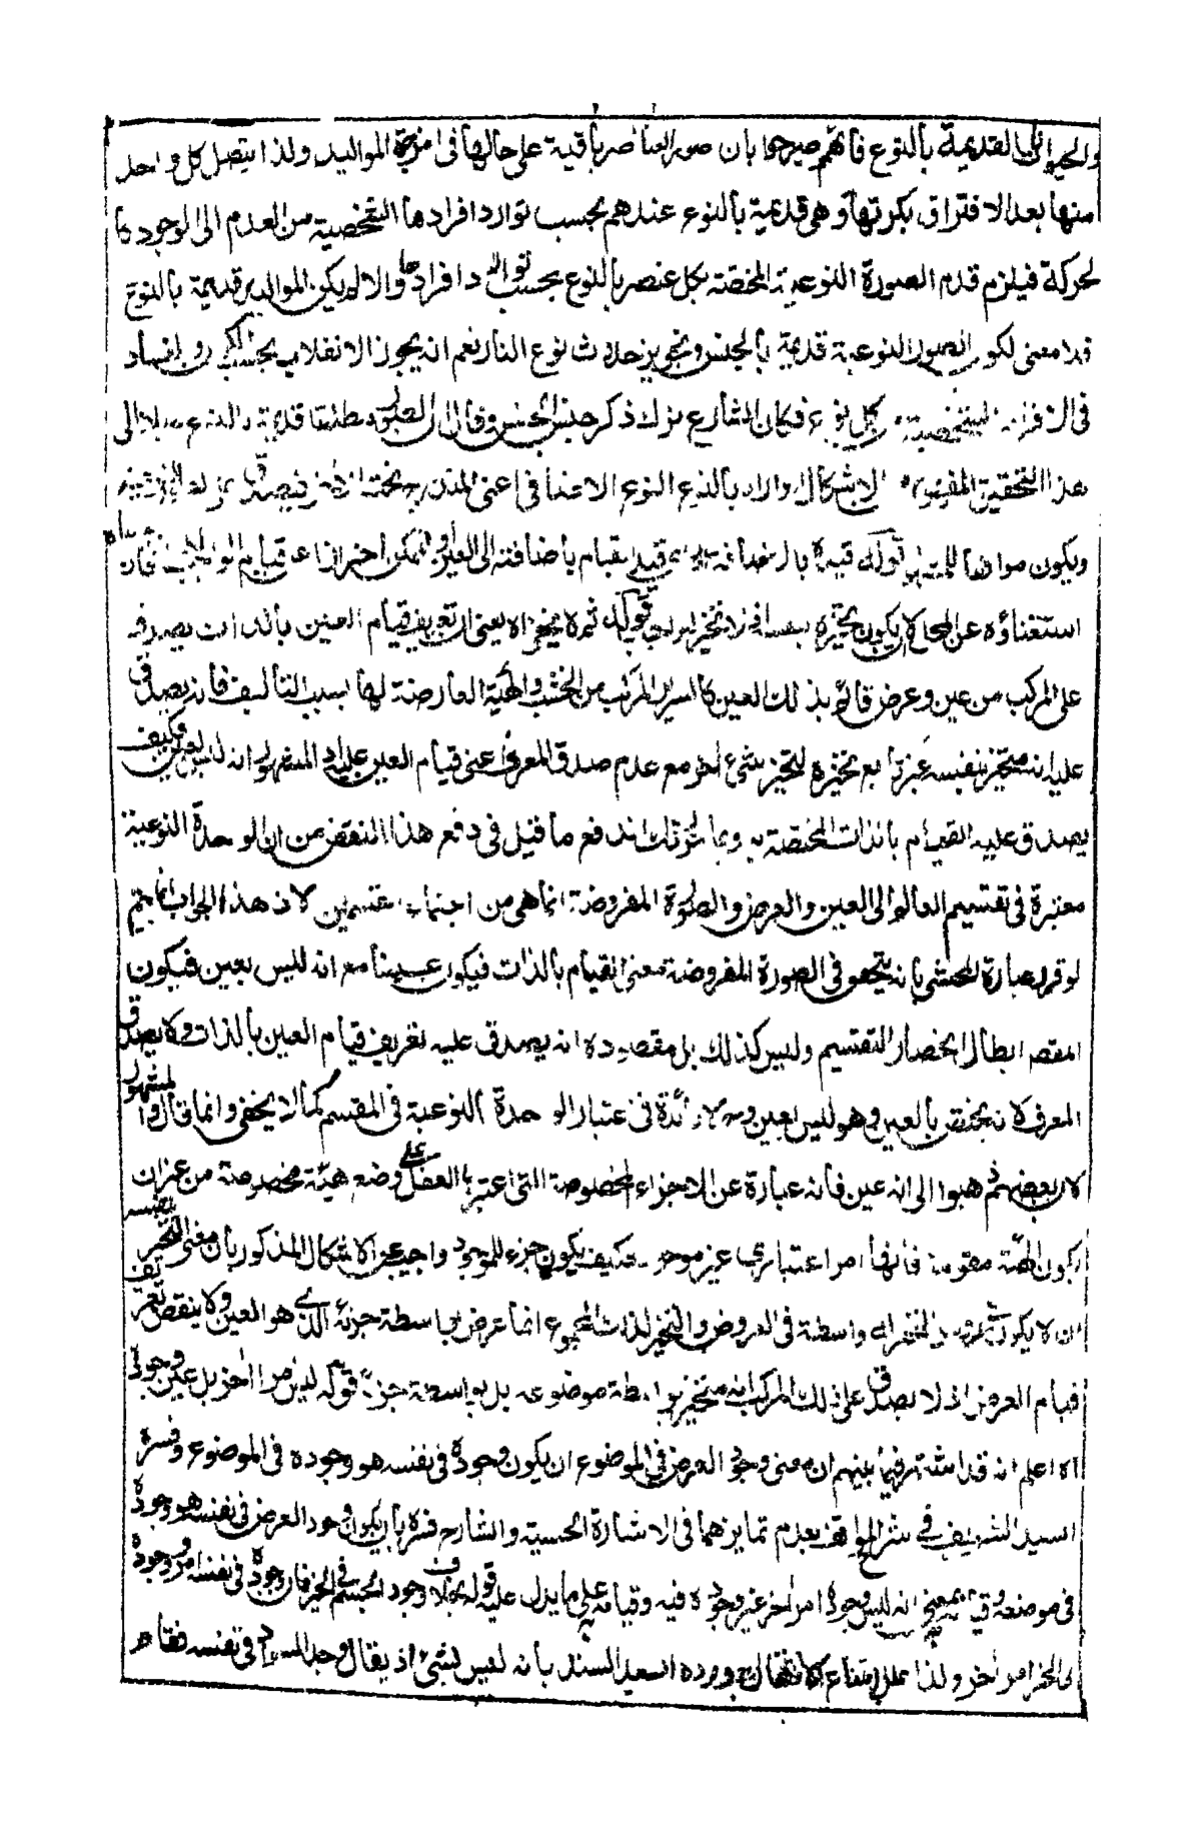 والحيوانات القديمة بالنوع فانهم صرحوا بان صور العناصر باقية على حالها فى امزجة المواليد ولذا يتصل كل واحد
منها بعد الافتراق بكرتها وهى قديمة بالنوع عندهم بحسب توارد افرادها الشخصية من العدم الى الوجود كا
لحركة فيلزم قدم الصورة النوعية المختصة بكل عنصر بالنوع بحسب توارد افرادها والا لم يكن المواليد قديمة بالنوع
فلا معنى لكون الصور النوعية قديمة بالجنس وتجويز حدوث نوع النار نعم انه يجوز الانقلاب بحسب الكون والفساد
فى الافراد الشخصية بكل نوع فكان الشارح ترك ذكر الجنس وقال ان الصور مطلقا قديمة بالنوع ميلا الى
هذا التحقيق الاشكال واراد بالنوع النوع الاضافى اعنى المندرج تحت
ويكون موافقا للمشهور قوله قيد بقيام باضافته الى العين ويمكن احترازا عن قيام الواجب فان
استغناؤه عن المحل لا يكون تحيزه بنفسه اذ لا تحيز له قوله ثمره يتحيز اه يعنى ان تعريف قيام العين بالذات يصدق
على المركب من عين وعرض قائم بذلك العين كالسرير المركب من الخشب والهيئة العارضة لها بسبب التأليف فانه يصدق
عليه انه متحيز بنفسه غير تابع تحيزه لتحيز شئ اخر مع عدم صدق المعرف اعنى قيام العين عليه اذ المشهور انه ليس بعين فكيف
يصدق عليه القيام بالذات المختصة به وبما حررنا لك اندفع ما قيل فى دفع هذا النقض من ان الوحدة النوعية
معتبرة فى تقسيم العالم الى العين والعرض والصورة المفروضة انما هى من اجتماع القسمين لان هذا الجواب انما يتم
لو قرر عبارة المحشى بانه يتحقق فى الصورة المفروضة معنى القيام بالذات فيكون عينا مع انه ليس بعين فيكون
المقصد ابطال انحصار التقسيم وليس كذلك بل مقصوده انه يصدق عليه تعريف قيام العين بالذات ولا يصدق
المعرف لانه يختص بالعين وهو ليس بعين ولا فائدة فى اعتبار الوحدة النوعية فى المقسم كما لا يخفى وانما قال والمشهور
لان بعضهم ذهبوا الى انه عين فانه عبارة عن الاجزاء المخصوصة التى اعتبرها العقل على وضع هيئة مخصوصة من غير ان
يكون الهيئة مقومة فانها امر اعتبارى غير موجود فكيف يكون جزء للموجود واجيب عن الاشكال المذكور بان معنى التحيز بنفسه
ان لا يكون واسطة فى العروض والتحيز لذات المجموع انما عرض بواسطة جزئه الذى هو العين ولا ينقض تعريف
قيام العرض اذ لا يصدق على ذلك المركب انه متحيز بواسطة موضوعه بل بواسطة جزئه قوله ليس امرا اخر بل عين وجوده
اه اعلم انه قد اشتهر فيما بينهم ان معنى وجود العرض فى الموضوع ان يكون وجوده فى نفسه هو وجوده فى الموضوع وفسره
السيد الشريف فى شرح المواقف بعدم تمايزهما فى الاشارة الحسية والشارح فسره بان يكون وجود العرض فى نفسه هو وجوده
فى موضوعه وقيامه بمعنى انه ليس وجوده امرا اخر غير وجوده فيه وقيامه به على ما يدل عليه قوله بخلاف وجود الجسم فى الحيز فان وجوده فى نفسه امر ووجوده
فى الحيز امر اخر ولذا علل امتناع الانتقال به ورده السعيد السند بانه ليس بشئ اذ يقال وجد السواد فى نفسه فقام